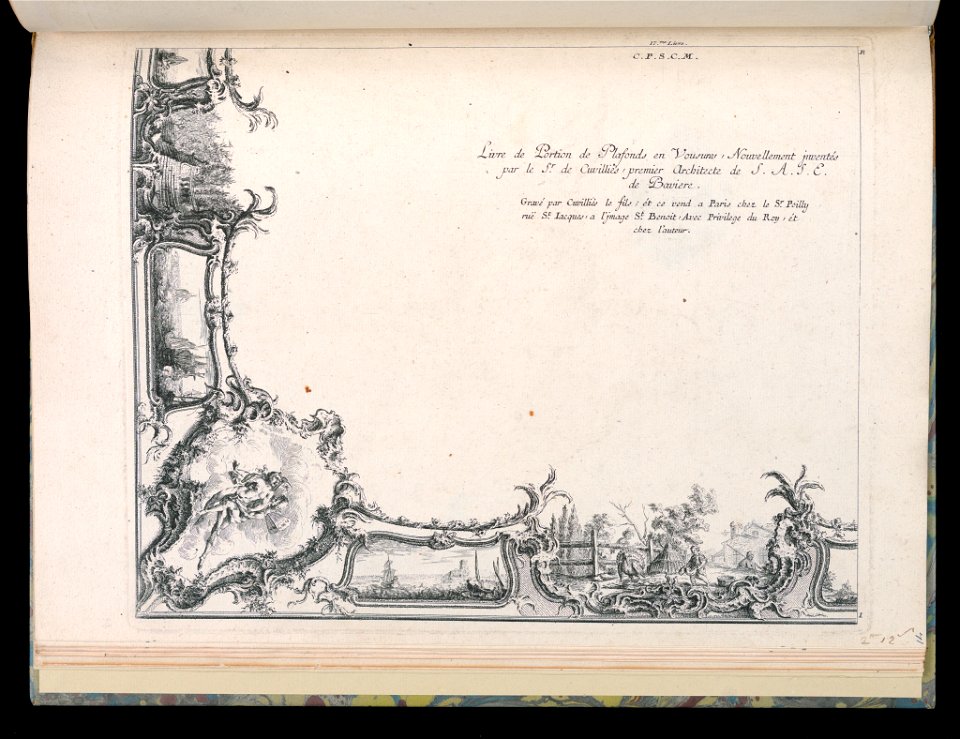 17.me Livre.
C. P. S. C. M.
R
Livre de Portion de Plafonds en Vousures, Nouvellement jnventés
par le Sr. de Cuvilliés, premier Architecte de S. A. S. E.
de Baviere.
Gravé par Cuvilliés le fils, ét ce vend a Paris chez le Sr. Poilly
ruë St. Iacques, a l'jmage St. Benoit, Avec Privilege du Roy, ét
chez l'auteur.
1